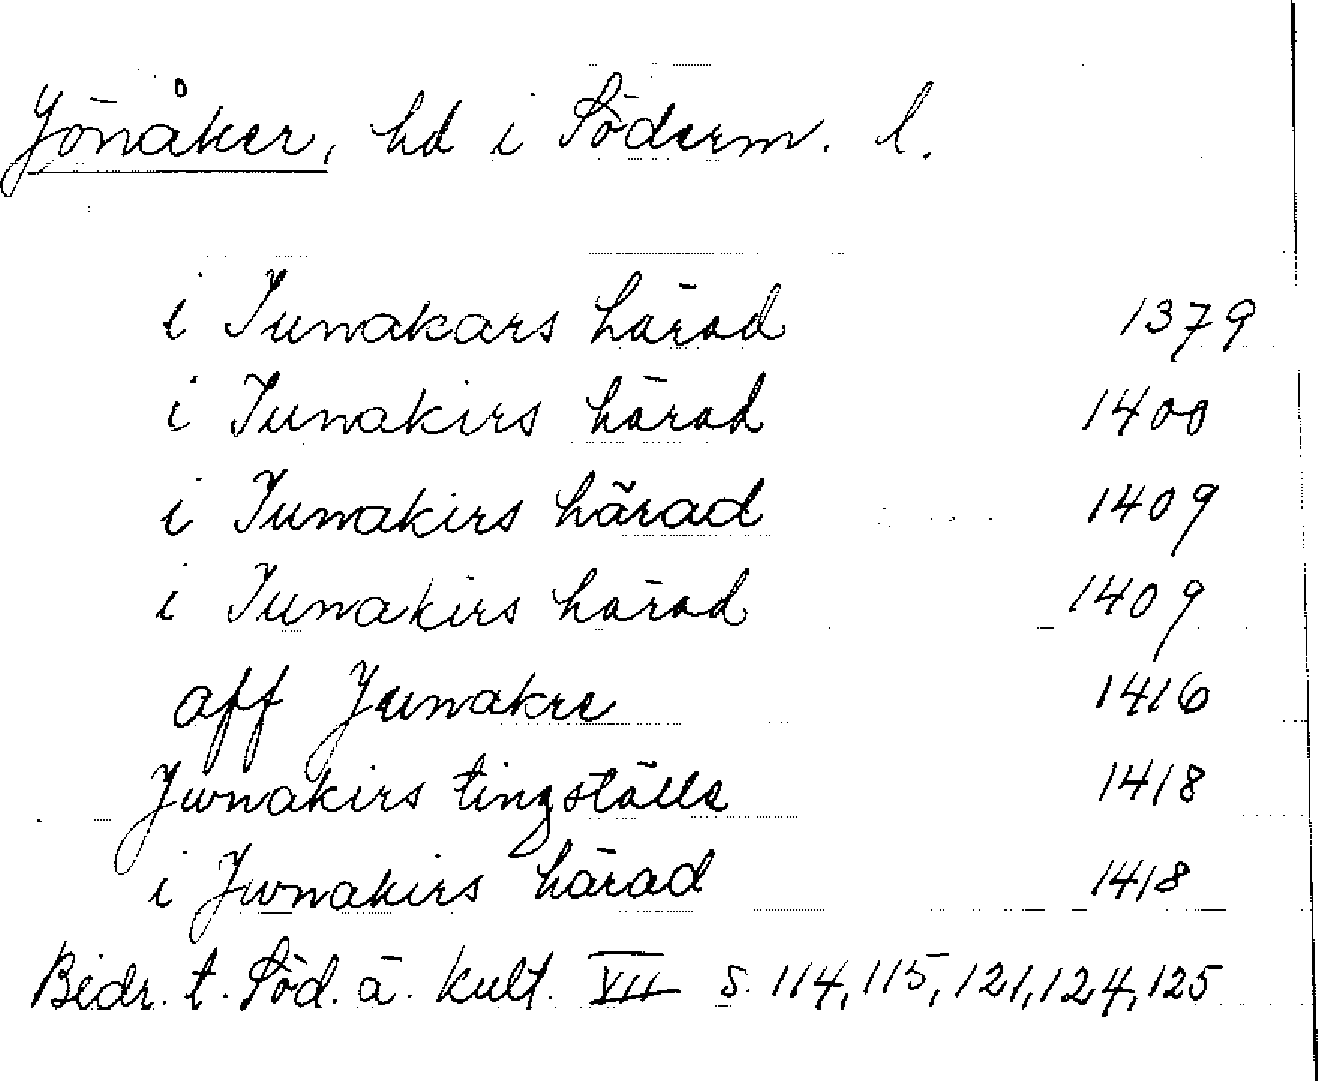 Jönåker, hd i Söderm. l.
i Iunakars härad 1379
i Iunakirs härad 1400
i Iunakirs härad 1409
i Iunakirs härad 1409
aff Junakre 1416
Jwnakirs tingställe 1418
i Jwnakirs härad 1418
Bidr. t. Söd. ä. kult. VII s. 114, 115, 121, 124, 125